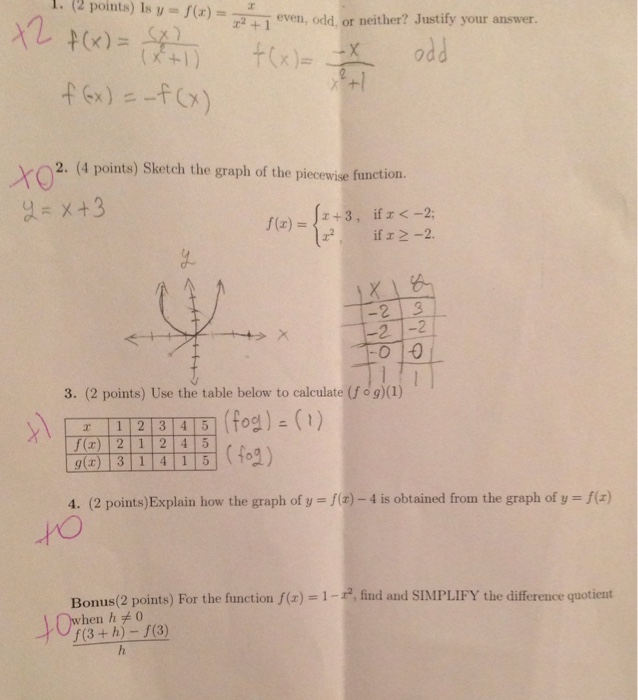 1. (2 points) Is y = f(x) = x/(x² + 1) even, odd, or neither? Justify your answer.
+2 f(x) = (x)/(x²+1) f(x) = -x/(x²+1) odd
f(-x) = -f(x)
+0 2. (4 points) Sketch the graph of the piecewise function.
y = x+3
f(x) = { x + 3, if x < -2;
x², if x ≥ -2.
y
x
x | y
-2 | 3
-2 | -2
-0 | 0
1 | 1
3. (2 points) Use the table below to calculate (f ∘ g)(1)
+1
x | 1 | 2 | 3 | 4 | 5 (fog) = (1)
f(x) | 2 | 1 | 2 | 4 | 5
g(x) | 3 | 1 | 4 | 1 | 5 (fog)
4. (2 points)Explain how the graph of y = f(x) − 4 is obtained from the graph of y = f(x)
+0
Bonus(2 points) For the function f(x) = 1 − x², find and SIMPLIFY the difference quotient
+0 when h ≠ 0
f(3 + h) − f(3)
h